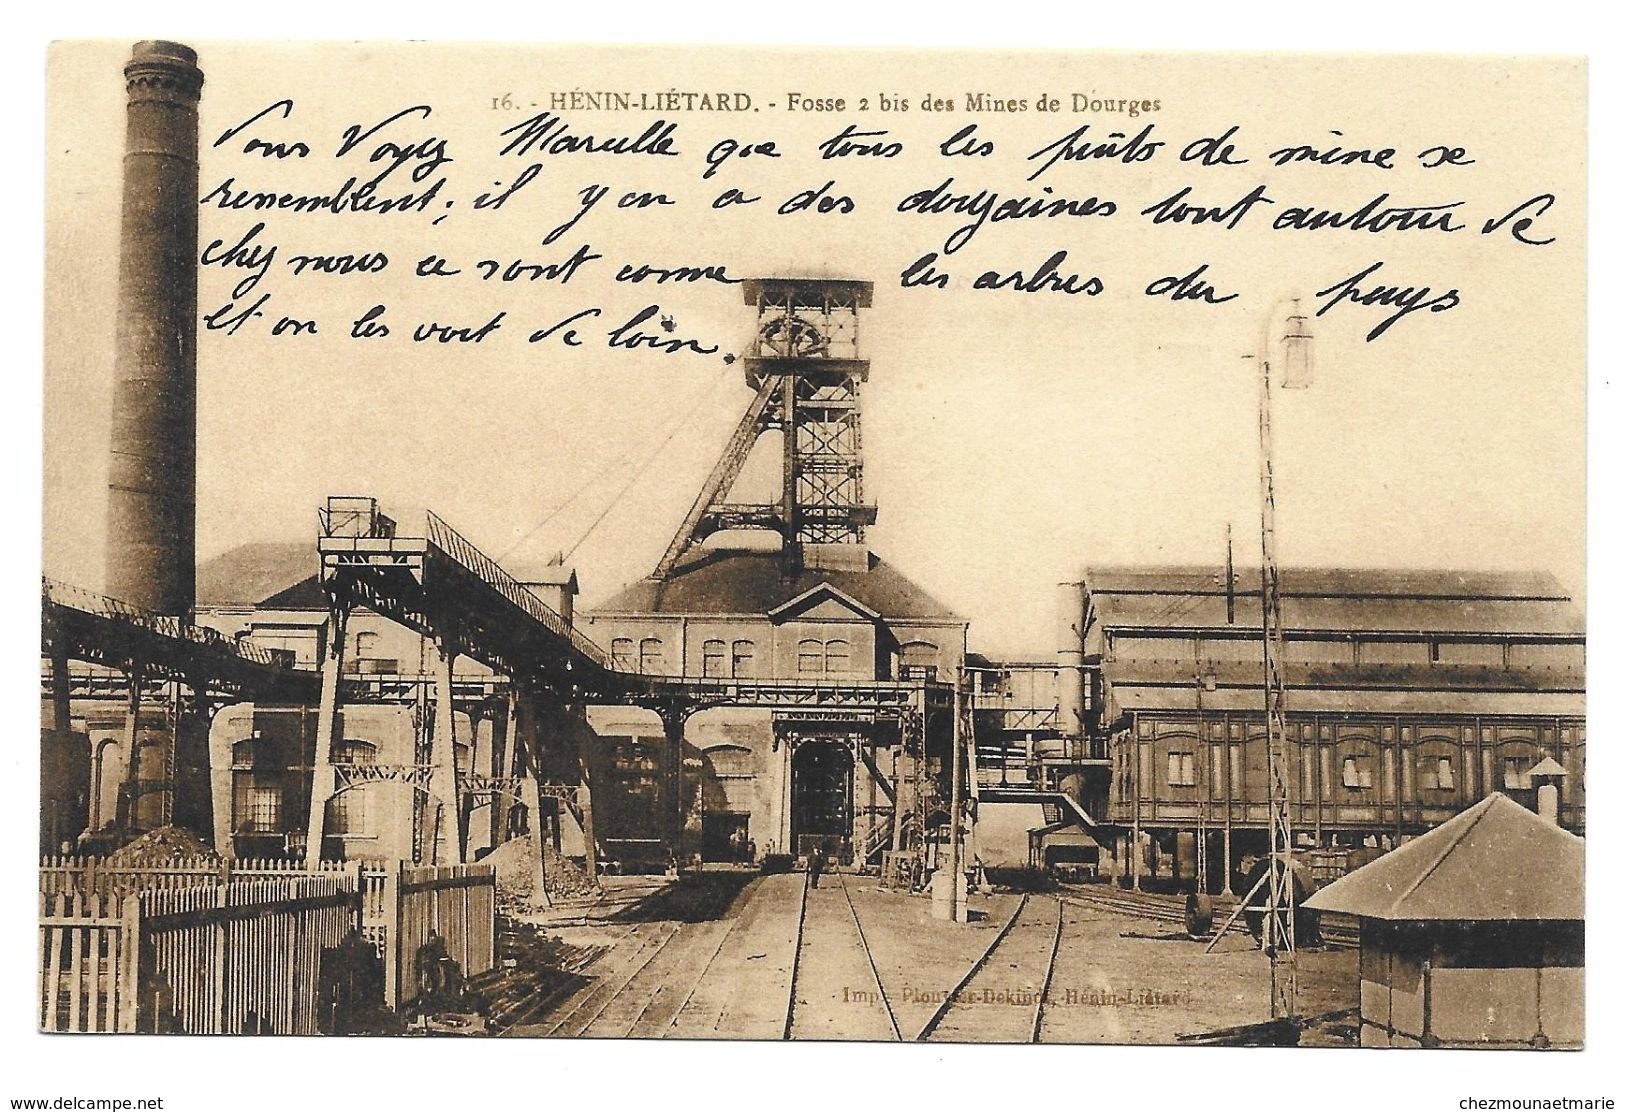 16. - HÉNIN-LIÉTARD. - Fosse 2 bis des Mines de Dourges
Vous Voyez Marcelle que tous les puits de mine se
ressemblent; il y en a des douzaines tout autour de
chez nous ce sont comme les arbres du pays
et on les voit de loin.
Imp. Plouvier-Dekindt, Hénin-Liétard
www.delcampe.net
chezmounaetmarie